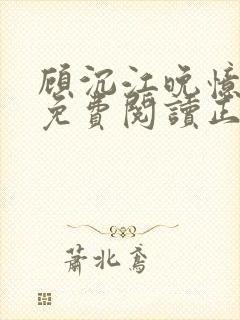 顾沉江晚憶
免費閱讀正
蕭北鳶